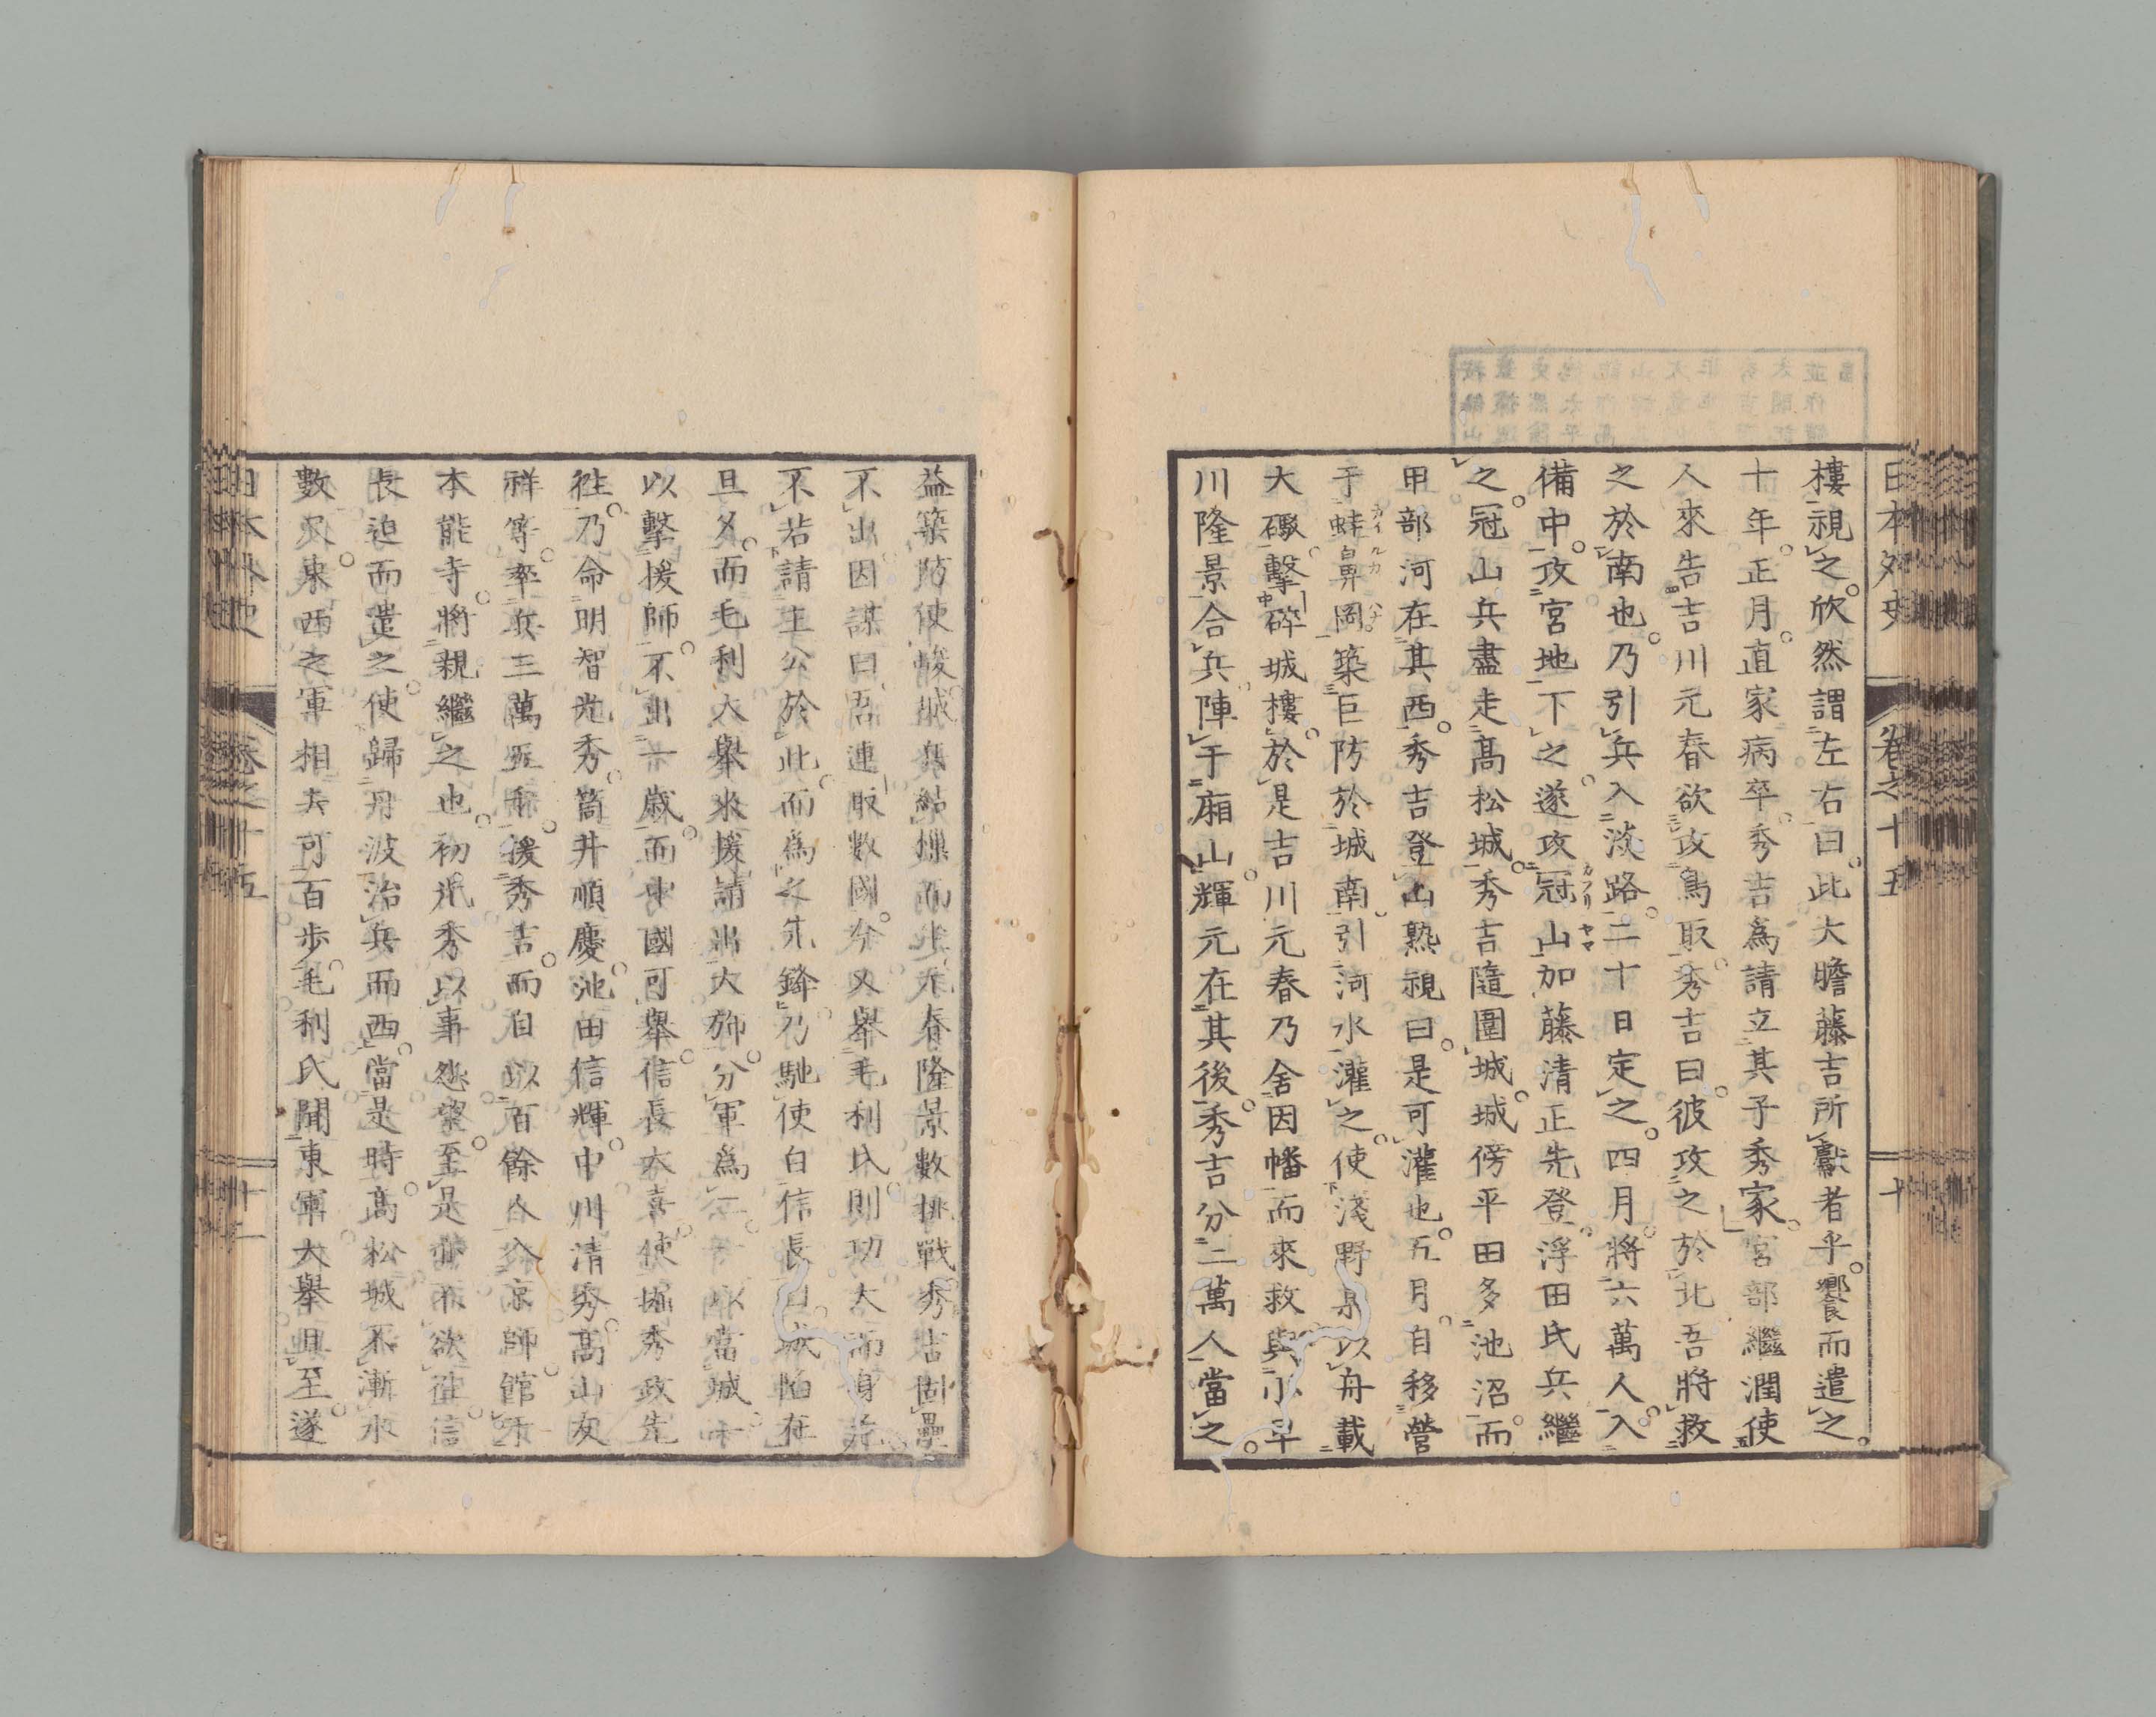 日本外史 卷之十五 十
樓視之。欣然謂左右曰。此大膽藤吉所獻者乎。饗而遣之。
十年。正月。直家病卒。秀吉爲請立其子秀家。宮部繼潤使
人來告吉川元春欲攻鳥取。秀吉曰。彼攻之於北吾將救
之於南也。乃引兵入淡路。二十日定之。四月。將六萬人。入
備中。攻宮地下之。遂攻冠山加藤清正先登。浮田氏兵繼
之。冠山兵盡走高松城。秀吉隨圍城。城傍平田多池沼。而
甲部河在其西。秀吉登山熟視曰。是可灌也。五月。自移營
于蛙鼻岡築巨防於城南。引河水灌之。使淺野 以舟載
大礮。擊碎城樓。於是吉川元春乃舍因幡而來救與小早
川隆景合兵陣于廂山。輝元在其後。秀吉分二萬人當之。
益築防使 城 元春隆景數挑戰秀吉固壘
不出因謀曰。吾連取數國。今又舉毛利氏。則功大而身
不若請主公於此。而爲之先鋒。乃馳使白信長曰。城陷在
旦夕。而毛利大舉來援請出大師。分軍爲二 以當城
以擊援師。不出一歲。而中國可舉。信長大喜。使堀秀政先
往。乃命明智光秀。筒井順慶。池田信輝。中川清秀。高山友
祥等。率兵三萬五千。援秀吉。而自以百餘人入京師。館
本能寺。將親繼之也。初光秀以事怨望。至是 不欲往信
長迫而遣之。使歸丹波治兵而西。當是時。高松城不漸水
數尺。東西之軍相去可百步。毛利氏聞東軍大舉且至。遂
日本外史 卷之十五 十一